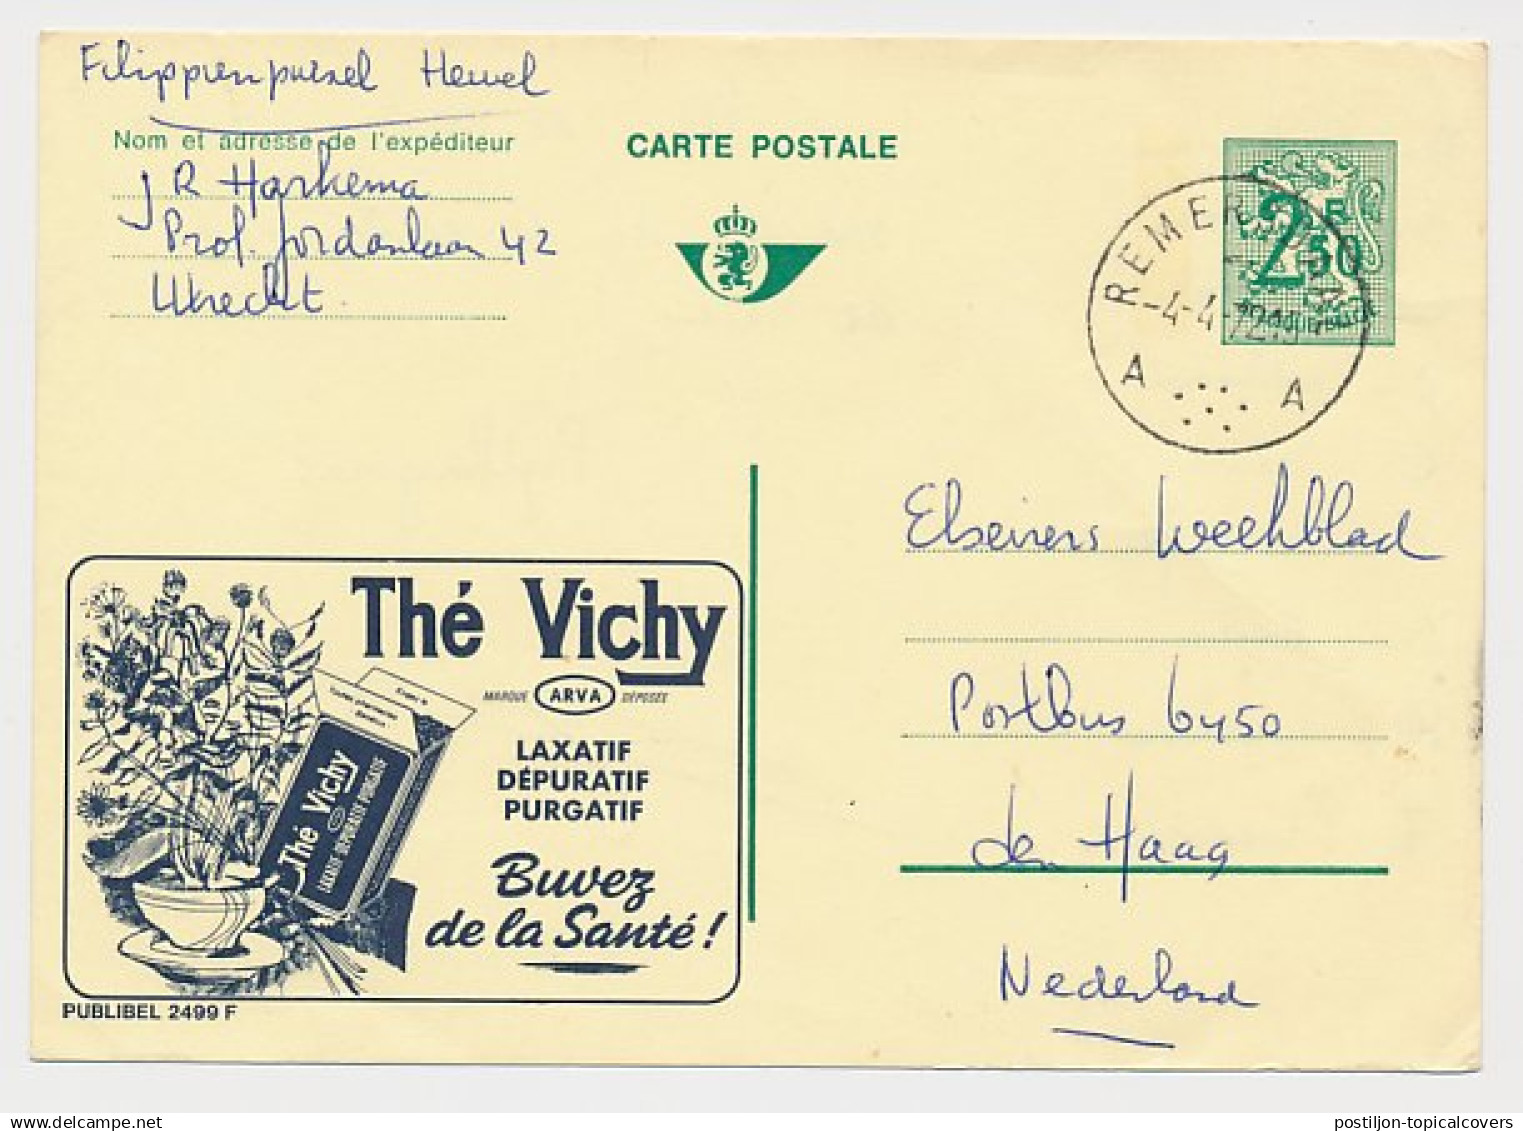 Filippienpuzzel Hewel
Nom et adresse de l'expéditeur
J R Harkema
Prof. Jordanlaan 42
Utrecht
CARTE POSTALE
2F50
REMER
-4-4-72
A A
Elseviers Weekblad
Postbus 6450
den Haag
Nederland
Thé Vichy
MARQUE ARVA DÉPOSÉE
LAXATIF
DÉPURATIF
PURGATIF
Thé Vichy
LAXATIF DÉPURATIF PURGATIF
Buvez
de la Santé !
PUBLIBEL 2499 F
delcampe.net
postiljon-topicalcovers